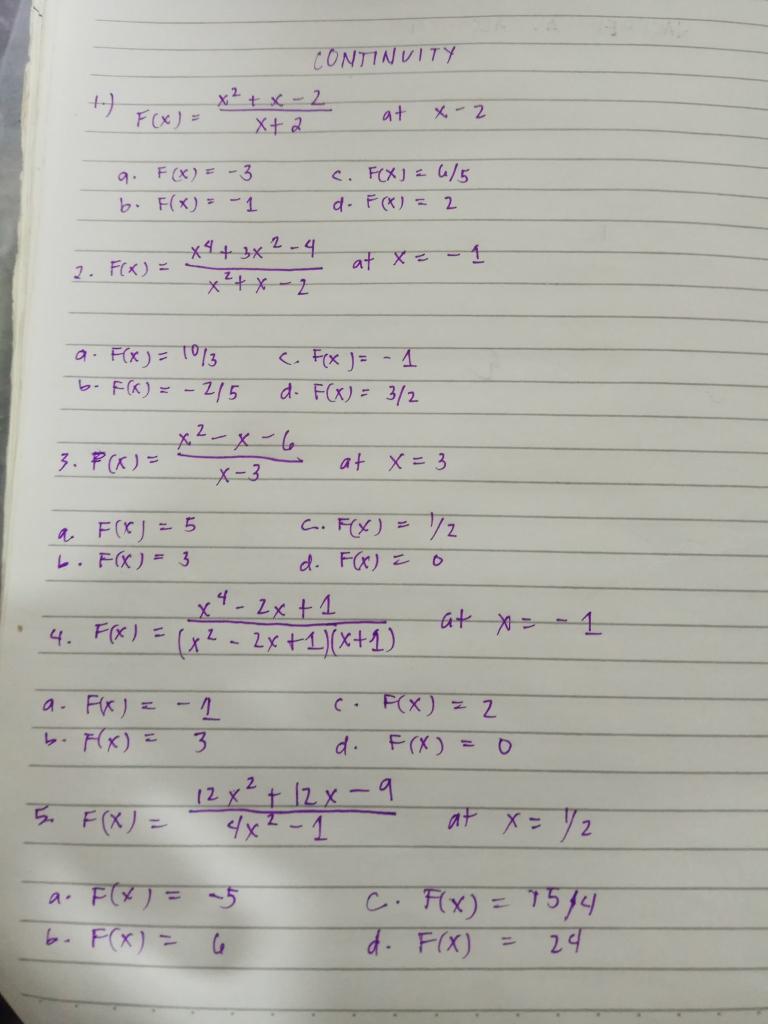 CONTINUITY
1.) F(x) = x² + x - 2 / x + 2 at x - 2
a. F(x) = -3 c. F(x) = 6/5
b. F(x) = -1 d. F(x) = 2
2. F(x) = x⁴ + 3x² - 4 / x² + x - 2 at x = -1
a. F(x) = 10/3 c. F(x) = -1
b. F(x) = -2/5 d. F(x) = 3/2
3. F(x) = x² - x - 6 / x - 3 at x = 3
a F(x) = 5 c. F(x) = 1/2
b. F(x) = 3 d. F(x) = 0
4. F(x) = x⁴ - 2x + 1 / (x² - 2x + 1)(x + 1) at x = -1
a. F(x) = -1 c. F(x) = 2
b. F(x) = 3 d. F(x) = 0
5. F(x) = 12x² + 12x - 9 / 4x² - 1 at x = 1/2
a. F(x) = -5 c. F(x) = 15/4
b. F(x) = 6 d. F(x) = 24